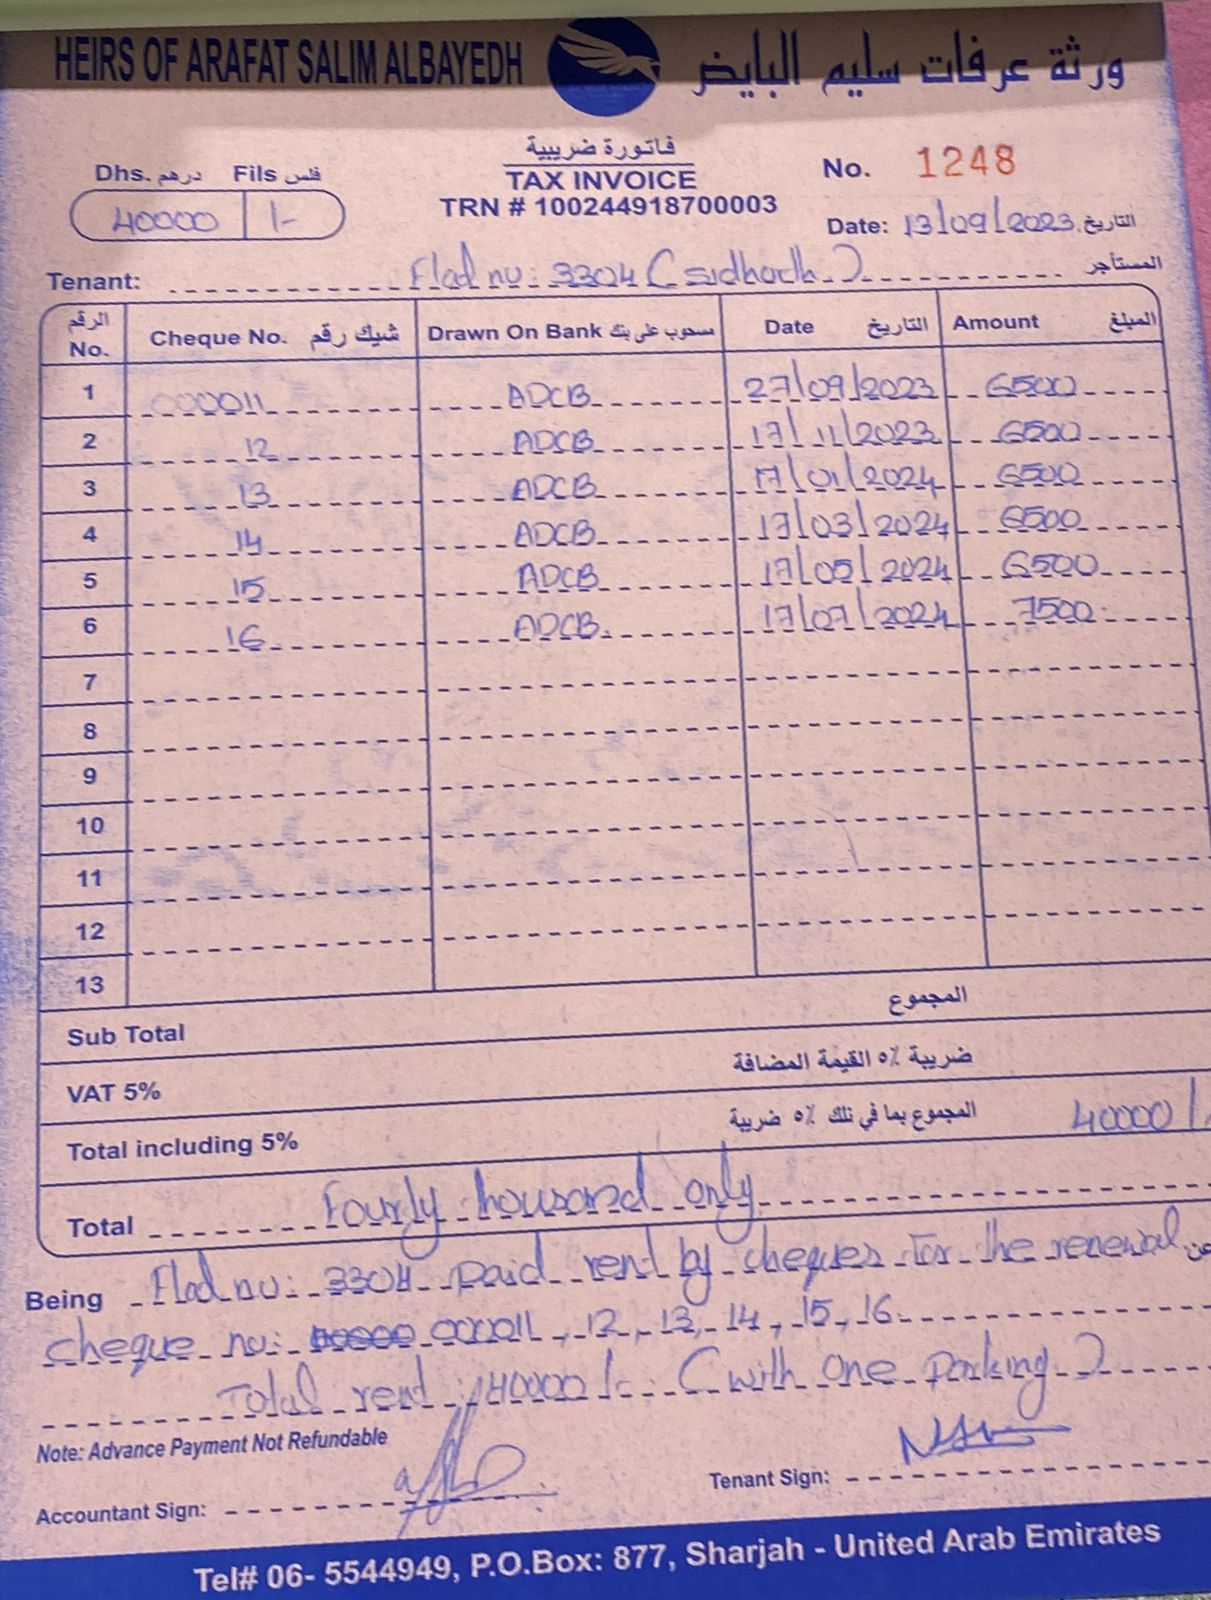 HEIRS OF ARAFAT SALIM ALBAYEDH ورثة عرفات سليم البايض
فاتورة ضريبية
TAX INVOICE
TRN # 100244918700003
Dhs. درهم Fils فلس
40000 /-
No. 1248
Date: 13/09/2023 التاريخ
Tenant: Flad no: 3304 (sidharth) المستأجر
الرقم No. Cheque No. شيك رقم Drawn On Bank مسحوب على بنك Date التاريخ Amount المبلغ
1 000011 ADCB 27/09/2023 6500
2 12 ADCB 17/11/2023 6500
3 13 ADCB 17/01/2024 6500
4 14 ADCB 17/03/2024 6500
5 15 ADCB 17/05/2024 6500
6 16 ADCB 17/07/2024 7500
7
8
9
10
11
12
13
Sub Total المجموع
VAT 5% ضريبة ٥٪ القيمة المضافة
Total including 5% المجموع بما في تلك ٥٪ ضريبة 40000/
Total Fourty housand only
Being Flad no: 3304 paid rent by cheques for the renewal عن
cheque no: 000011, 12, 13, 14, 15, 16
Total rent: 40000/- (with one parking)
Note: Advance Payment Not Refundable
Accountant Sign: Tenant Sign:
Tel# 06- 5544949, P.O.Box: 877, Sharjah - United Arab Emirates